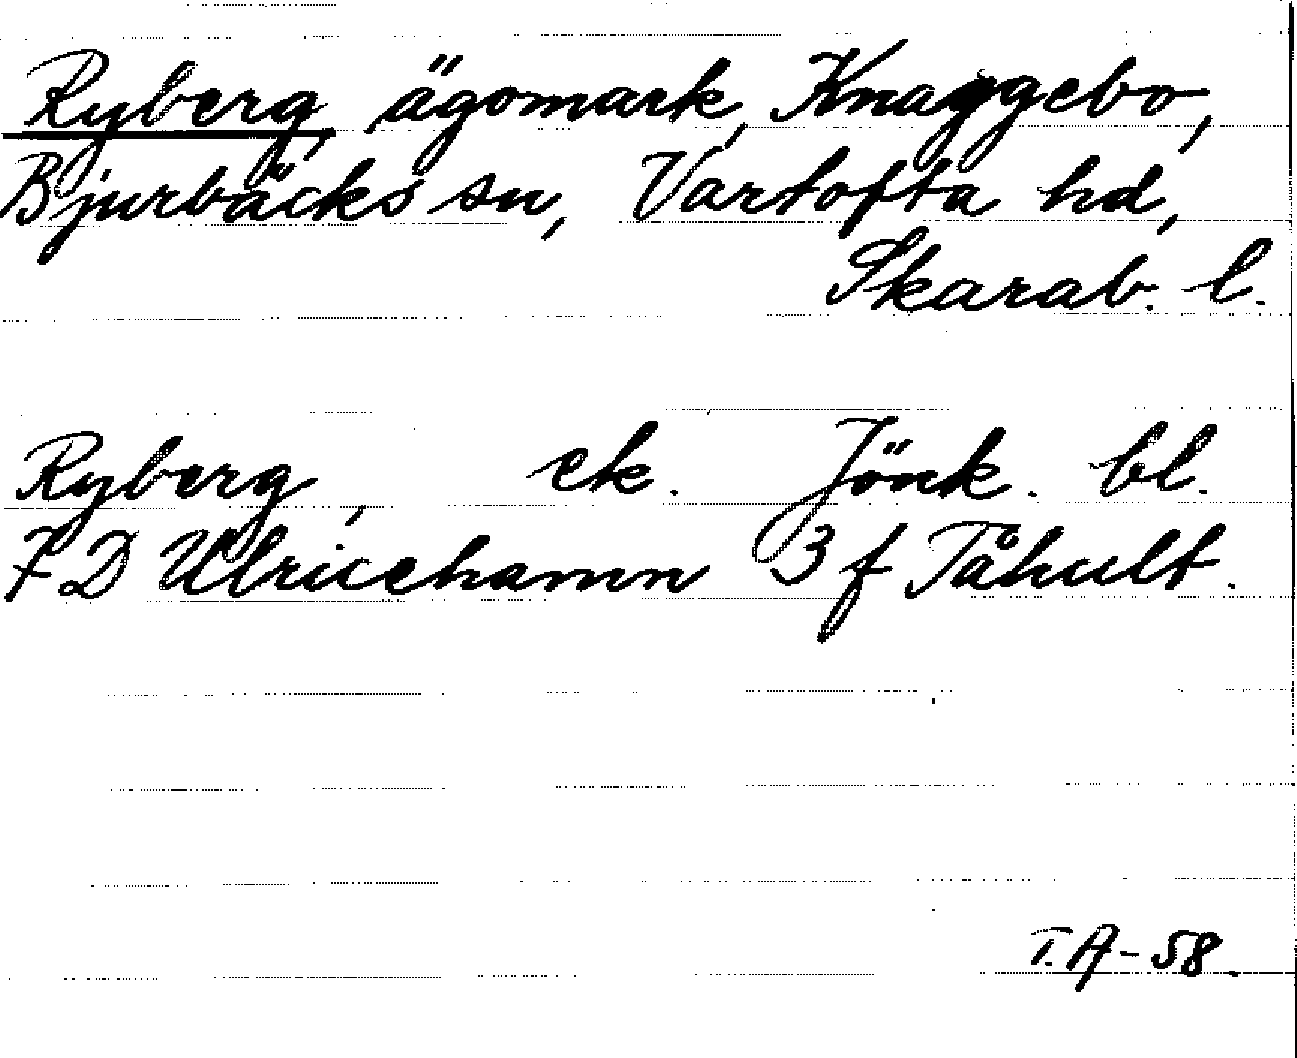 Ryberg, ägomark, Knaggebo,
Bjurbäcks sn, Vartofta hd,
Skarab. l.
Ryberg, ek. Jönk. bl.
7 D Ulricehamn 3 f Tåhult.
T. A-58.